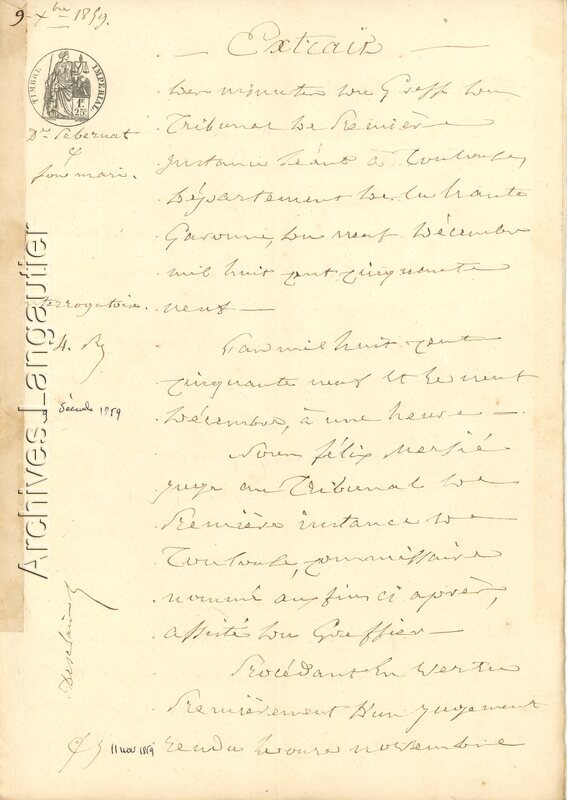 9 Xbre 1859.
Extrait
TIMBRE IMPERIAL
1F
25c
Des minutes du Greffe du
Tribunal de Première
Instance séant à Toulouse,
Département de la haute
Garonne, du neuf Décembre
mil huit cent cinquante
neuf —
Dme Pebernat
et
Son mari.
Interrogatoire.
4. R
L'an mil huit cent
cinquante neuf et le neuf
Décembre, à une heure —
9 décembre 1859
Nous félix Mersié
juge au Tribunal de
Première instance de
Toulouse, commissaire
nommé aux fins ci après,
assisté du Greffier —
Procédant En Vertu
Premièrement D'un Jugement
rendu le onze novembre
11 nov 1859
Archives Langautier